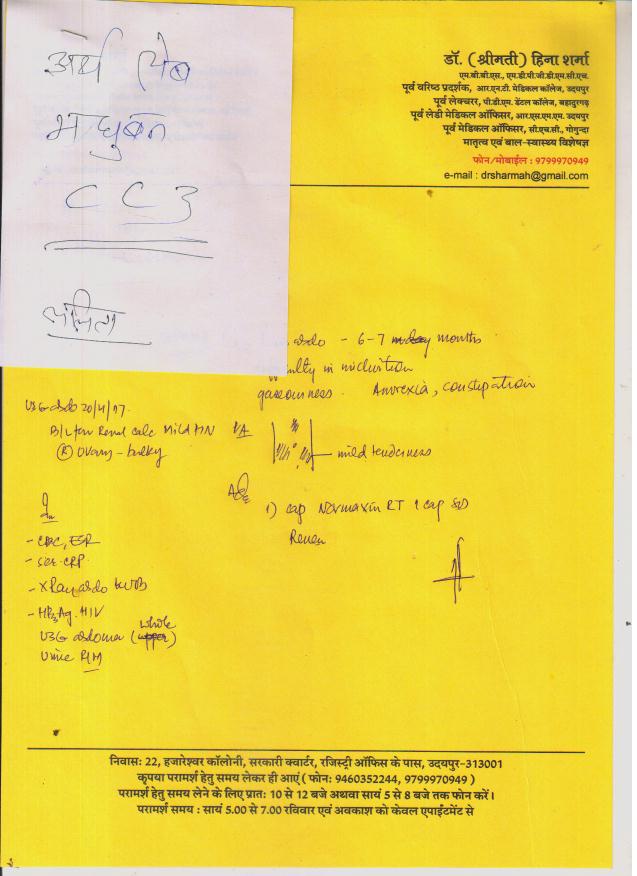 अर्थ लेब
मधुबन
CC3
ललिता
डॉ. (श्रीमती) हिना शर्मा
एम.बी.बी.एस., एम.डी.पी.जी.डी.एम.सी.एच.
पूर्व वरिष्ठ प्रदर्शक, आर.एन.टी. मेडिकल कॉलेज, उदयपुर
पूर्व लेक्चरर, पी.डी.एम. डेंटल कॉलेज, बहादुरगढ़
पूर्व लेडी मेडिकल ऑफिसर, आर.एस.एम.एम. उदयपुर
पूर्व मेडिकल ऑफिसर, सी.एच.सी., गोगुन्दा
मातृत्व एवं बाल-स्वास्थ्य विशेषज्ञ
फोन/मोबाईल : 9799970949
e-mail : drsharmah@gmail.com
abdo - 6-7 months
in micturition
gaseousness. Anorexia, constipation
USG abdo 20/4/17.
B/L few Renal calc Mild HN
(R) Ovary - bulky
P/A
mild tenderness
Adv
1) cap Normaxin RT 1 cap BD
Review
- CBC, ESR
- ser. CRP
- X Ray abdo KUB
- HBsAg. HIV
USG abdomen (whole)
Urine R/M
निवास: 22, हजारेश्वर कॉलोनी, सरकारी क्वार्टर, रजिस्ट्री ऑफिस के पास, उदयपुर-313001
कृपया परामर्श हेतु समय लेकर ही आएं ( फोन: 9460352244, 9799970949 )
परामर्श हेतु समय लेने के लिए प्रात: 10 से 12 बजे अथवा सायं 5 से 8 बजे तक फोन करें।
परामर्श समय : सायं 5.00 से 7.00 रविवार एवं अवकाश को केवल एपाईंटमेंट से